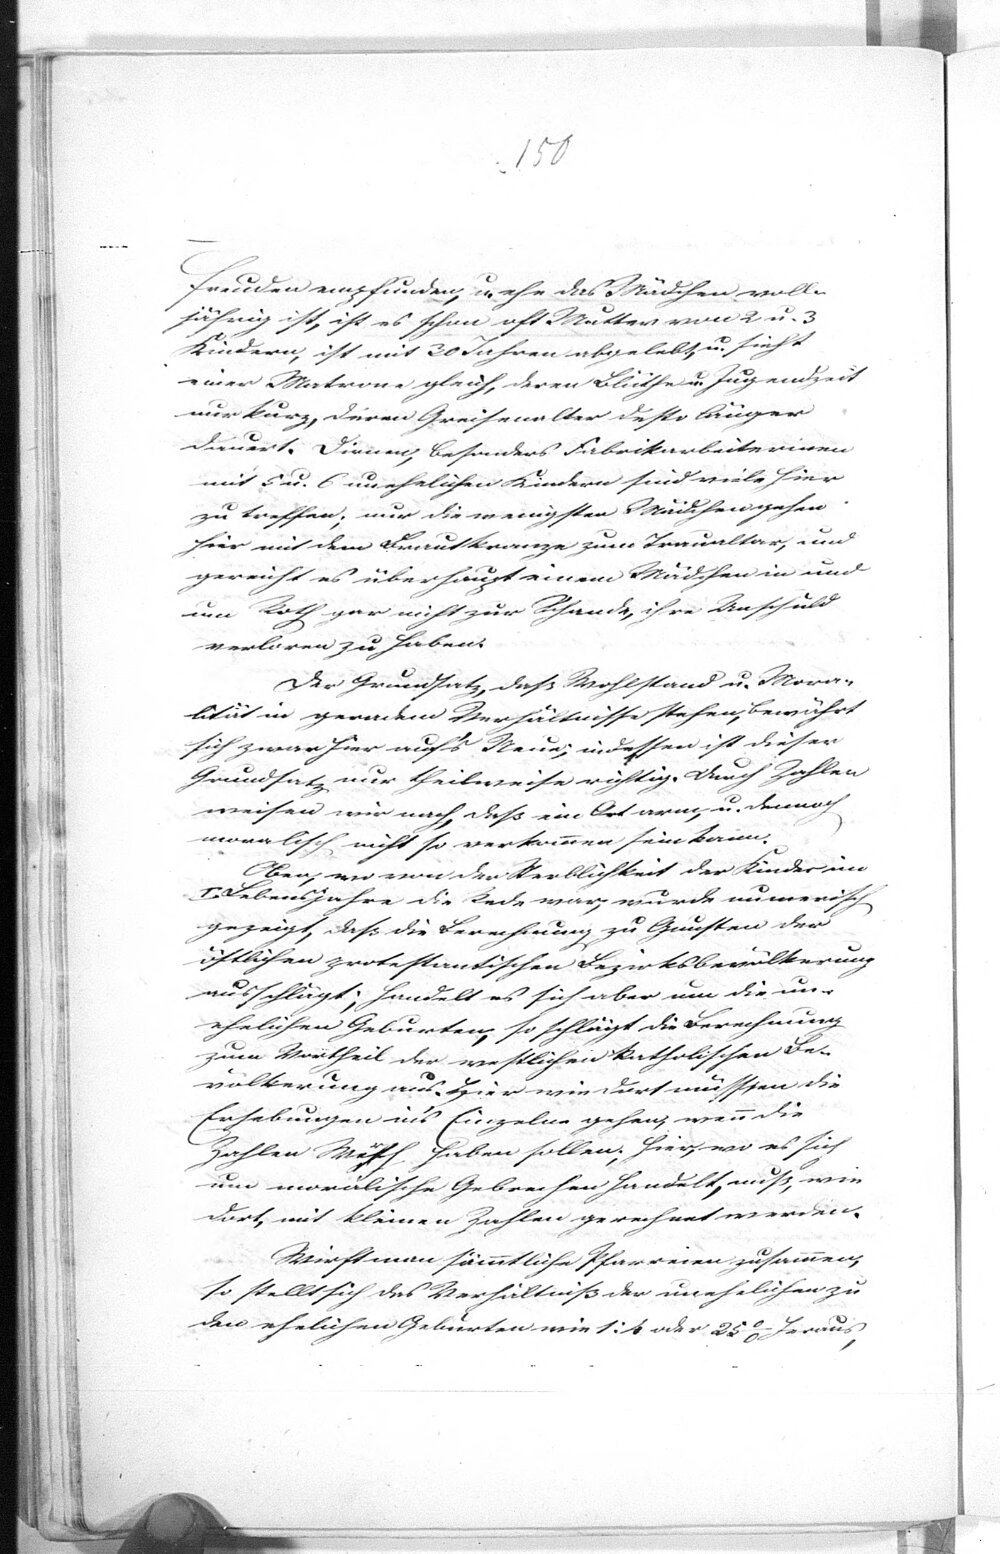 150
freuden empfunden, u. ehe das Mädchen voll-
jährig ist, ist es schon oft Mutter von 2 u. 3
Kindern, ist mit 30 Jahren abgelebt, u. sieht
einer Matrone gleich, deren Blüthe u. Jugendzeit
nur kurz, deren Greisenalter desto länger
dauert. Dirnen, besonders Fabrikarbeiterinen
mit 5 u. 6 unehelichen Kindern sind viele hier
zu treffen; nur die wenigsten Mädchen gehen
hier mit dem Brautkranze zum Traualtar, und
gereicht es überhaupt einem Mädchen in und
um Roth gar nicht zur Schande, ihre Unschuld
verloren zu haben.
Der Grundsatz, daß Wohlstand u. Mora-
lität in geradem Verhältnisse stehen, bewährt
sich zwar hier auf's Neue; indessen ist dieser
Grundsatz nur theilweise richtig. Durch Zahlen
weisen wir nach, daß ein Ort arm, u. dennoch
moralisch nicht so verkommen sein kann.
Oben, wo von der Sterblichkeit der Kinder im
I. Lebensjahre die Rede war, wurde numerisch
gezeigt, daß die Berechnung zu Gunsten der
östlichen protestantischen Bezirksbevölkerung
ausschlägt; handelt es sich aber um die un-
ehelichen Geburten, so schlägt die Berechnung
zum Vortheil der westlichen katholischen Be-
völkerung aus. Hier wie dort müssen die
Erhebungen in's Einzelne gehen, wenn die
Zahlen Werth haben sollen; hier, wo es sich
um moralische Gebrechen handelt, muß, wie
dort, mit kleinen Zahlen gerechnet werden.
Wirft man sämmtliche Pfarreien zusammen,
so stellt sich das Verhältniß der unehelichen zu
den ehelichen Geburten wie 1:4 oder 25% heraus,